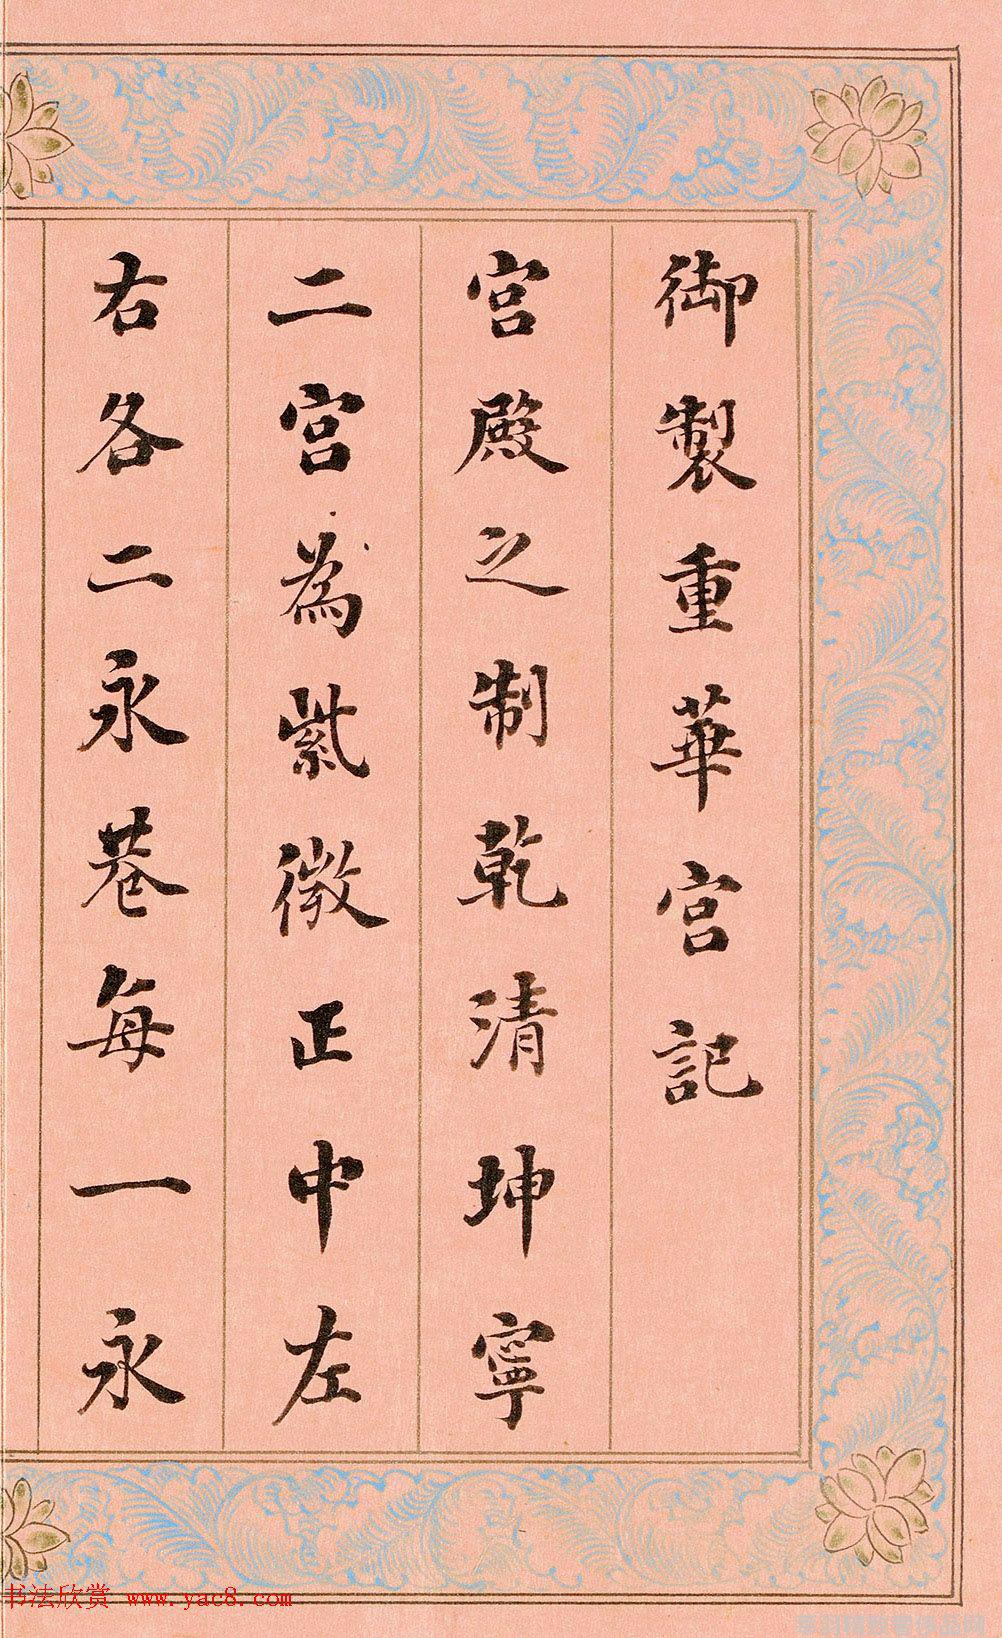 御製重華宮記
宮殿之制乾清坤寧
二宮為紫微正中左
右各二永巷每一永
书法欣赏 www.yac8.com